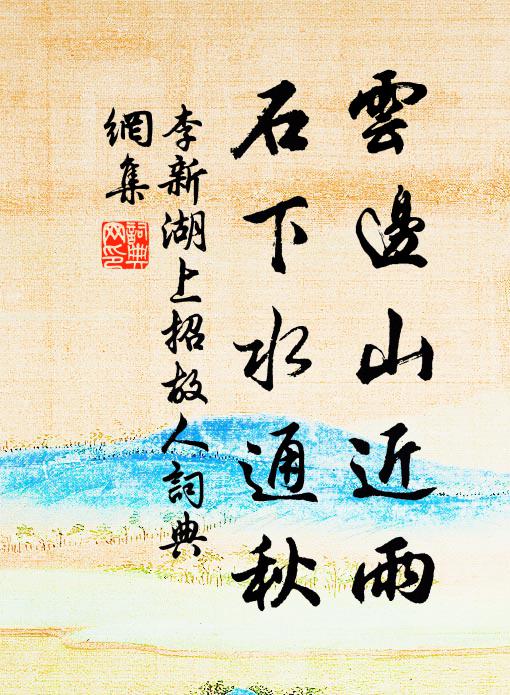 雲邊山近雨
石下水通秋
李新湖上招故人詞典
網集
詞典
網印